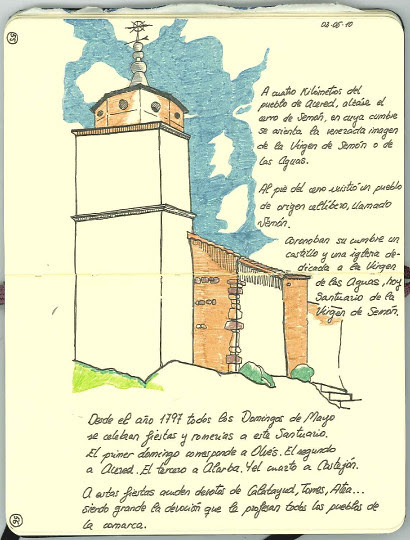 53
02-05-10
A cuatro Kilómetros del
pueblo de Acered, álzase el
cerro de Semón, en cuya cumbre
se asienta la venerada imagen
de la Virgen de Semón o de
las Aguas.
Al pie del cerro existió un pueblo
de origen celtíbero, llamado
Semón.
Coronaban su cumbre un
castillo y una iglesia de-
dicada a la Virgen
de las Aguas, hoy
Santuario de la
Virgen de Semón.
Desde el año 1797 todos los Domingos de Mayo
se celebran fiestas y romerías a este Santuario.
El primer domingo corresponde a Olvés. El segundo
a Acered. El tercero a Alarba. Y el cuarto a Castejón.
A estas fiestas acuden devotos de Calatayud, Torres, Atea...
siendo grande la devoción que le profesan todos los pueblos de
la comarca.